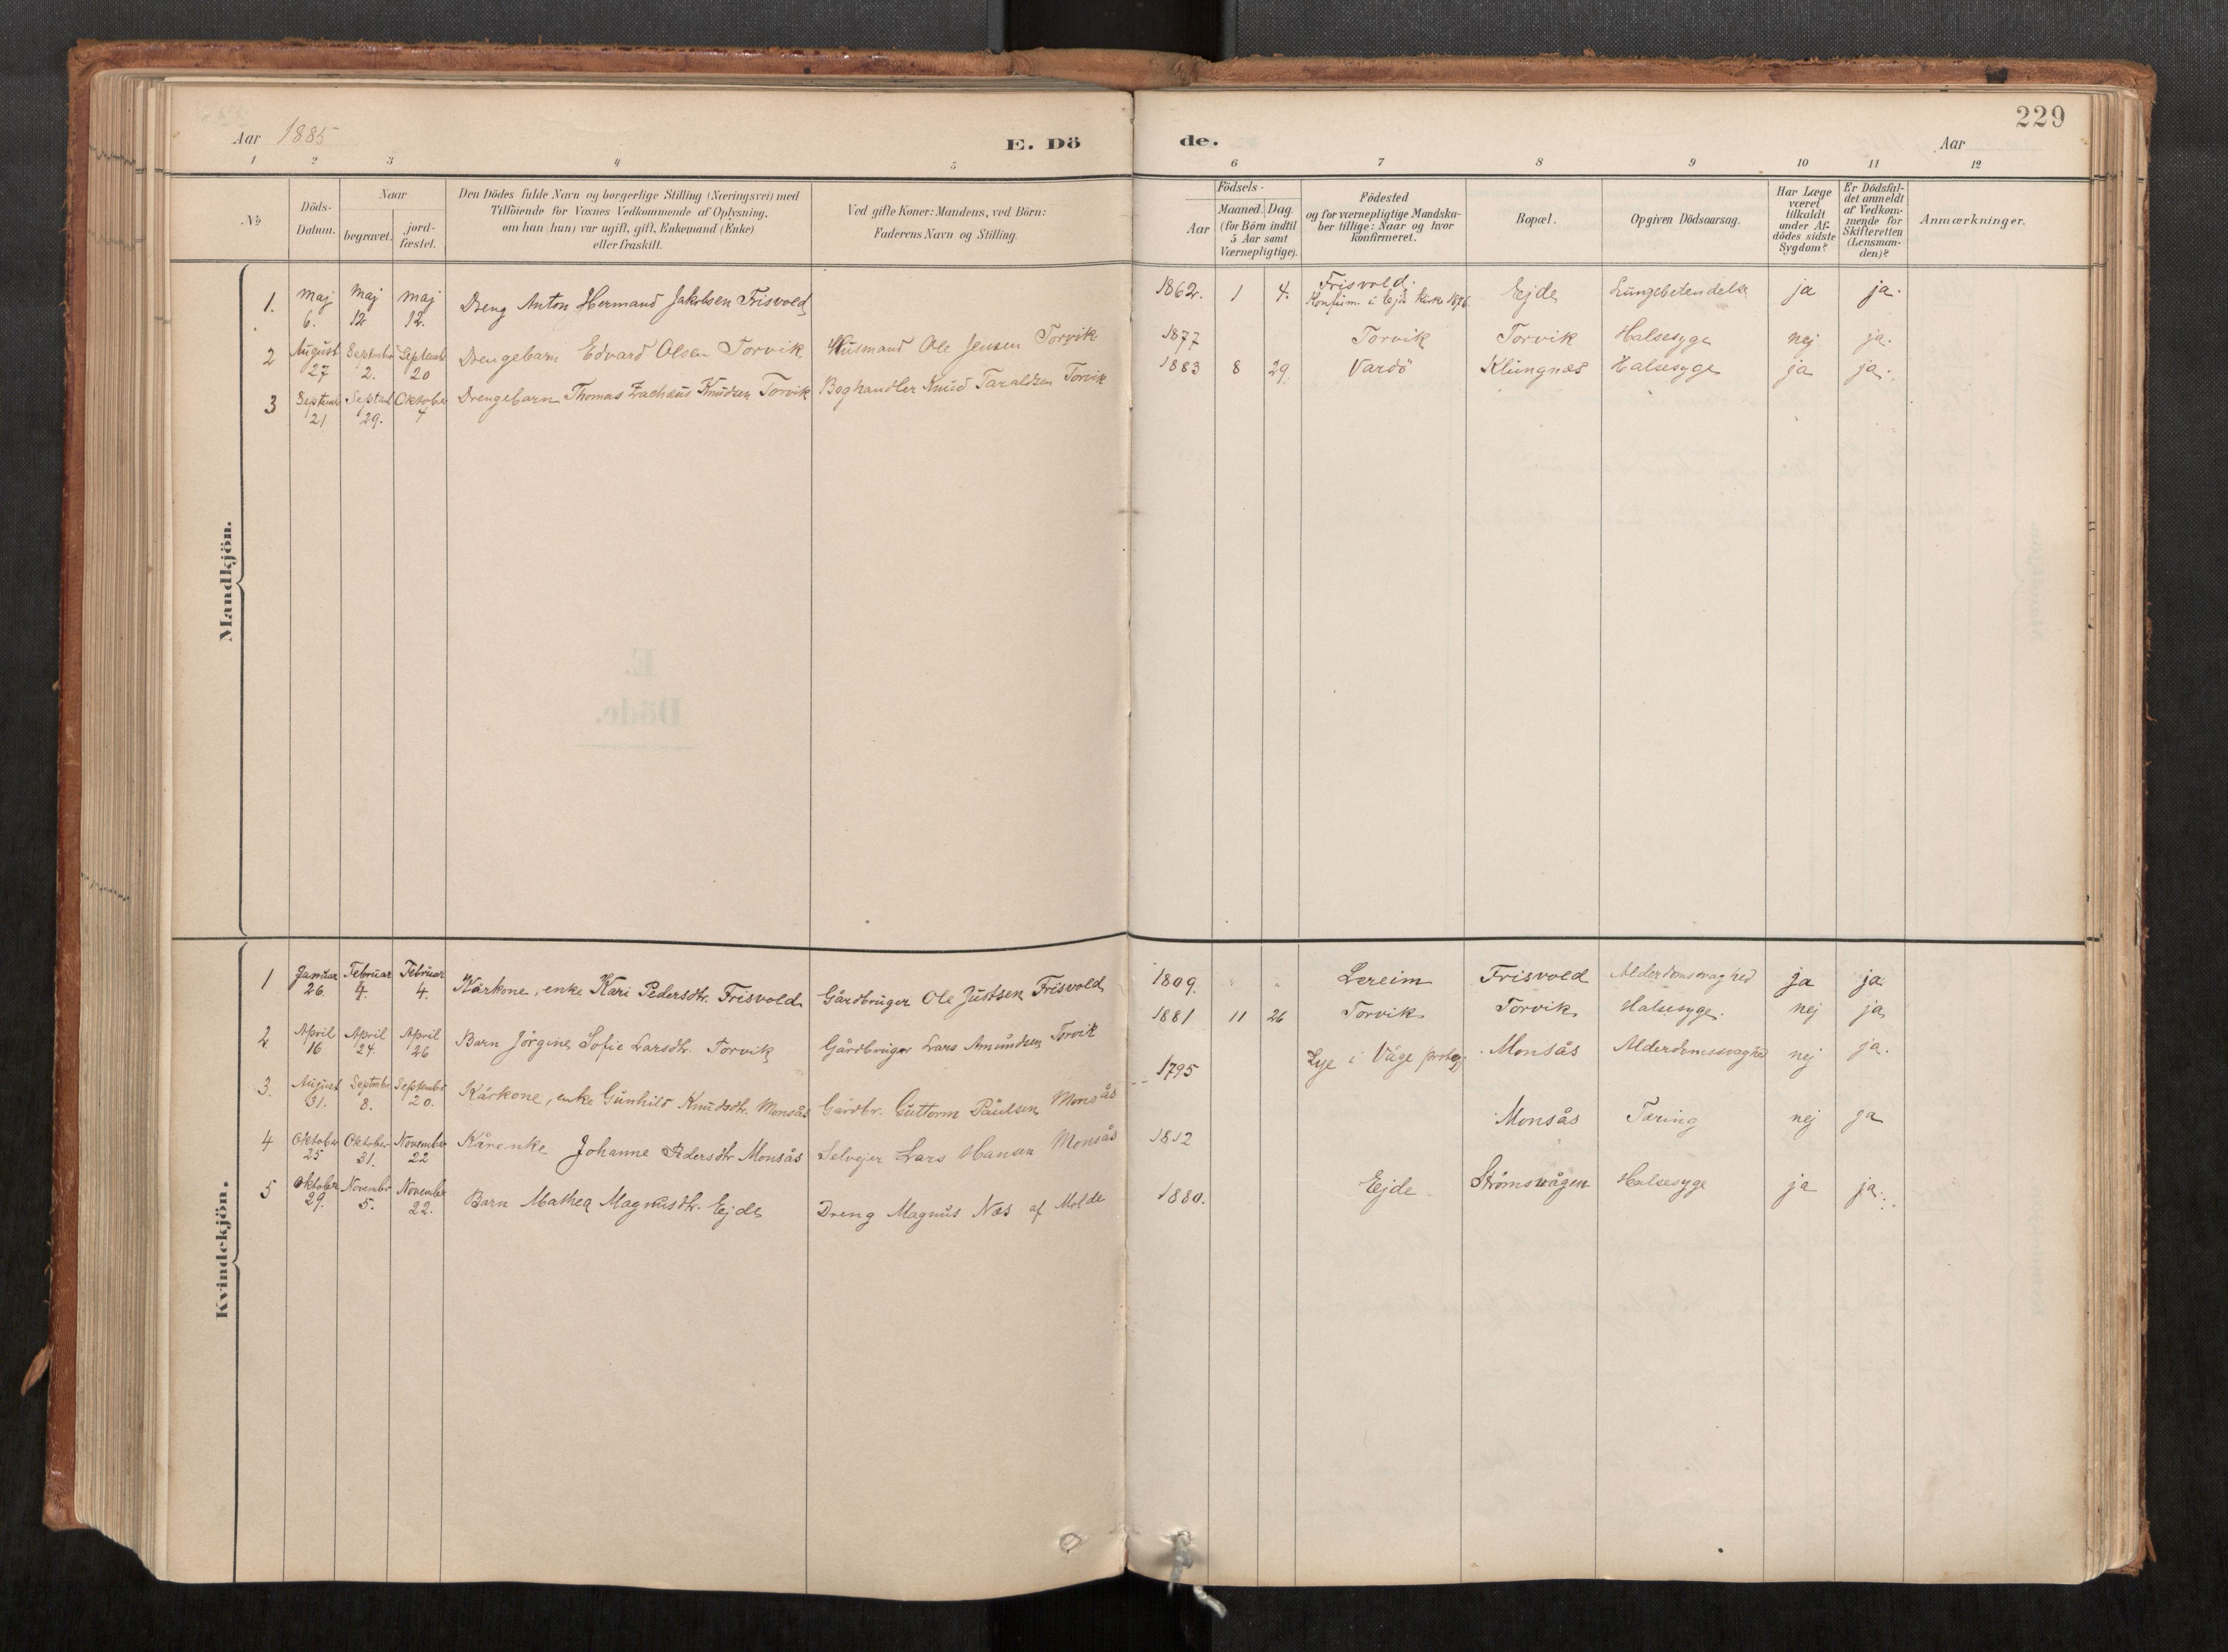 229
Aar 1885
E. Dö
de.
Aar
1 2 3 4 5 6 7 8 9 10 11 12
No
Döds-
Datum.
Naar
begravet.
jord-
fæstet.
Den Dödes fulde Navn og borgerlige Stilling (Næringsvei) med
Tilföiende for Voxnes Vedkommende af Oplysning,
om han (hun) var ugift, gift, Enkemand (Enke)
eller fraskilt.
Ved gifte Koner: Mandens, ved Börn:
Faderens Navn og Stilling.
Födsels-
Aar
Maaned.
Dag.
(for Börn indtil
5 Aar samt
Værnepligtige).
Födested
og for værnepligtige Mandska-
ber tillige: Naar og hvor
konfirmeret.
Bopæl.
Opgiven Dödsaarsag.
Har Læge
været
tilkaldt
under Af-
dödes sidste
Sygdom?
Er Dödsfal-
det anmeldt
af Vedkom-
mende for
Skifteretten
(Lensman-
den)?
Anmærkninger.
Mandkjön.
1. Maj 6. Maj 12 Maj 12. Dreng Anton Hermand Jakobsen Frisvold 1862. 1 4. Frisvold. Konfirm. i Ejds Kirke 1876 Ejde Lungebetendelse ja ja.
2 August 27 Septembr 2. Septembr 20 Drengebarn Edvard Olsen Torvik Husmand Ole Jensen Torvik 1877 Torvik Torvik Halsesyge nej ja.
3 Septembr 21 Septbr 29. Oktober 4 Drengebarn Thomas Zachæus Knudsen Torvik Boghandler Knud Taraldsen Torvik 1883 8 29. Vardö Klungnæs Halsesyge ja ja.
E.
Döde.
Kvindekjön.
1 Januar 26. Februar 4. Februar 4. Kårkone, enke Kari Pedersdtr. Frisvold Gårdbruger Ole Justsen Frisvold 1809. " " Lereim Frisvold Alderdomssvaghed ja ja.
2 April 16 April 24. April 26 Barn Jörgine Sofie Larsdtr. Torvik Gårdbruger Lars Amundsen Torvik 1881 11 26 Torvik Torvik Halsesyge. nej ja
3. August 31. Septmbr 8. Septembr 20. Kårkone, enke Gunhild Knudsdtr. Monsås Gårdbr. Guttorm Paulsen Monsås 1795 Lye i Våge prstg. Monsås Alderdomssvaghed nej ja.
4 Oktober 25 Oktober 31. November 22 Kårenke Johanne Pedersdtr Monsås Selvejer Lars Hansen Monsås 1812 Monsås Tæring nej ja
5 Oktober 29. Novembr 5. November 22. Barn Mathea Magnusdtr. Ejde Dreng Magnus Næs af Molde 1880. Ejde Strömsvågen Halsesyge ja ja.